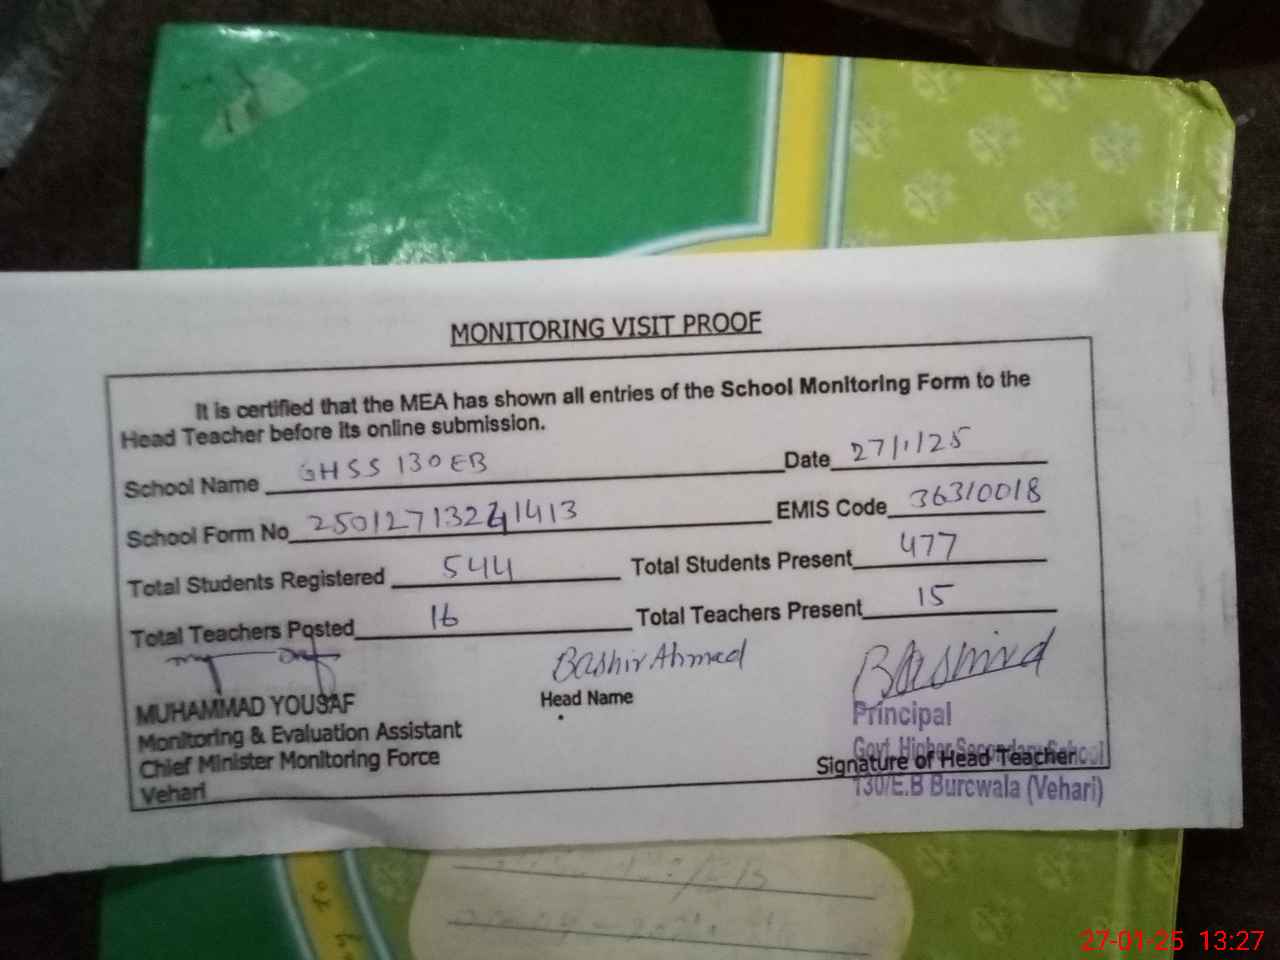 MONITORING VISIT PROOF
It is certified that the MEA has shown all entries of the School Monitoring Form to the
Head Teacher before its online submission.
School Name GHSS 130 EB Date 27/1/25
School Form No 250127132241413 EMIS Code 36310018
Total Students Registered 544 Total Students Present 477
Total Teachers Posted 16 Total Teachers Present 15
Bashir Ahmad
MUHAMMAD YOUSAF Head Name
Monitoring & Evaluation Assistant
Chief Minister Monitoring Force
Vehari
Principal
Govt. Higher Secondary School
Signature of Head Teacher
130/E.B Burewala (Vehari)
27-01-25 13:27